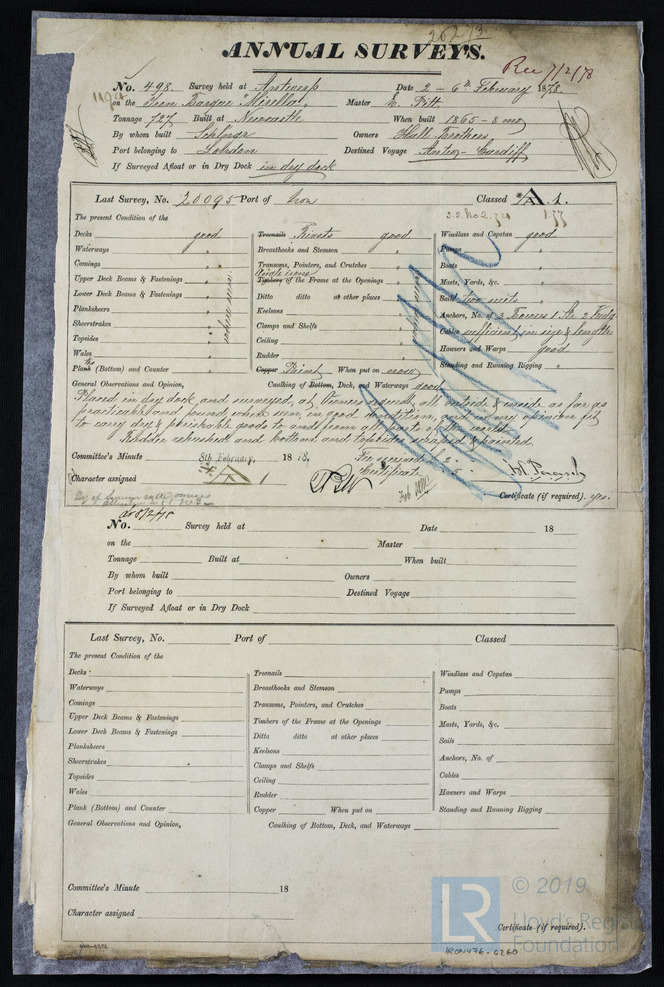 26273
ANNUAL SURVEYS.
Rec 7/2/78
No. 498. Survey held at Antwerp Date 2 - 6th February 1878.
on the Iron Barque "Mirella" Master E. Pitt
Tonnage 727 Built at Newcastle When built 1865 - 8 mo
By whom built Owners Hall Brothers
Port belonging to London Destined Voyage Cardiff
If Surveyed Afloat or in Dry Dock in dry dock
Last Survey, No. 20095 Port of Classed A. 1.
The present Condition of the
Decks good
Waterways "
Comings "
Upper Deck Beams & Fastenings "
Lower Deck Beams & Fastenings "
Planksheers "
Sheerstrakes "
Topsides "
Wales "
Plank (Bottom) and Counter "
when seen
Treenails Rivets good
Breasthooks and Stemson "
Transoms, Pointers, and Crutches "
Timbers of the Frame at the Openings "
Ditto ditto at other places "
Keelsons "
Clamps and Shelfs "
Ceiling "
Rudder "
Copper Paint When put on now
Windlass and Capstan good
Pumps "
Boats "
Masts, Yards, &c. "
Sails two suits
Anchors, No. of 3 Bowers 1 St. 2 Kedg
Cables sufficient in size & length
Hawsers and Warps good
Standing and Running Rigging "
General Observations and Opinion, Caulking of Bottom, Deck, and Waterways good
Placed in dry dock and surveyed, at Owners request, all outside & inside as far as
practicable and found when seen, in good condition, and in my opinion fit
to carry dry & perishable goods to and from all parts of the world.
Rudder rebushed and bottom and topsides scraped & painted
Committee's Minute 8th February, 1878.
Character assigned A 1
Certificate
Certificate (if required). yes.
No. Survey held at Date 18
on the Master
Tonnage Built at When built
By whom built Owners
Port belonging to Destined Voyage
If Surveyed Afloat or in Dry Dock
Last Survey, No. Port of Classed
The present Condition of the
Decks
Waterways
Comings
Upper Deck Beams & Fastenings
Lower Deck Beams & Fastenings
Planksheers
Sheerstrakes
Topsides
Wales
Plank (Bottom) and Counter
Treenails
Breasthooks and Stemson
Transoms, Pointers, and Crutches
Timbers of the Frame at the Openings
Ditto ditto at other places
Keelsons
Clamps and Shelfs
Ceiling
Rudder
Copper When put on
Windlass and Capstan
Pumps
Boats
Masts, Yards, &c.
Sails
Anchors, No. of
Cables
Hawsers and Warps
Standing and Running Rigging
General Observations and Opinion, Caulking of Bottom, Deck, and Waterways
Committee's Minute 18
Character assigned
Certificate (if required).
LR © 2019
Lloyd's Register
Foundation
IRON476-0260